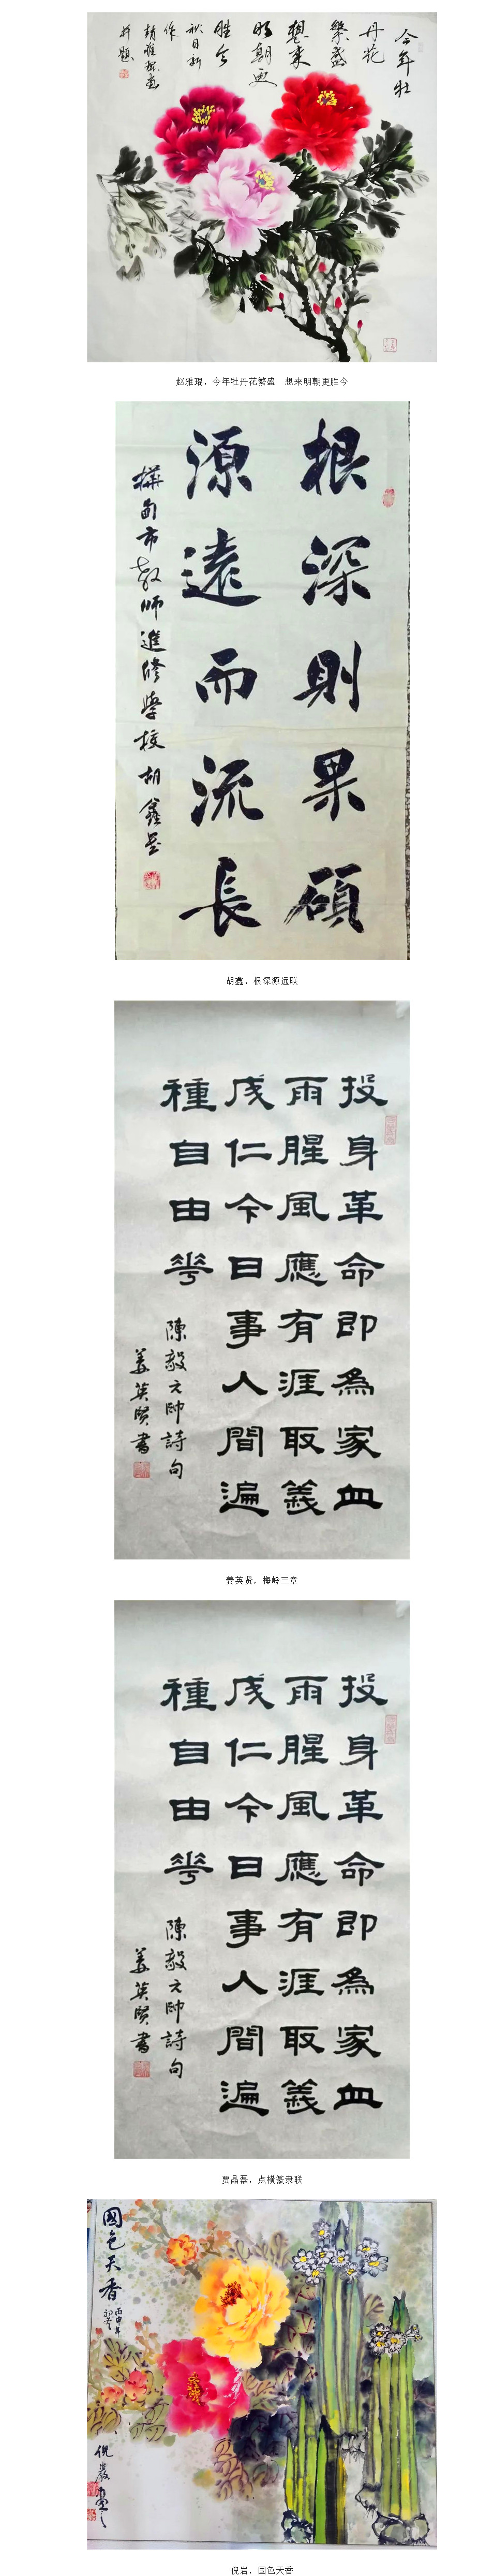 今年牡
丹花
繁盛
想来
明朝更
胜今
秋日新
作
并题
赵雅琨，今年牡丹花繁盛　想来明朝更胜今
根深則果碩
源遠而流長
樺甸市教師進修學校胡鑫書
胡鑫，根深源远联
投身革命即為家血
雨腥風應有涯取義
成仁今日事人間遍
種自由花
陳毅元帥詩句
姜英賢書
姜英贤，梅岭三章
投身革命即為家血
雨腥風應有涯取義
成仁今日事人間遍
種自由花
陳毅元帥詩句
姜英賢書
贾晶磊，点横篆隶联
國色天香
丙申年
倪巖畫
倪岩，国色天香